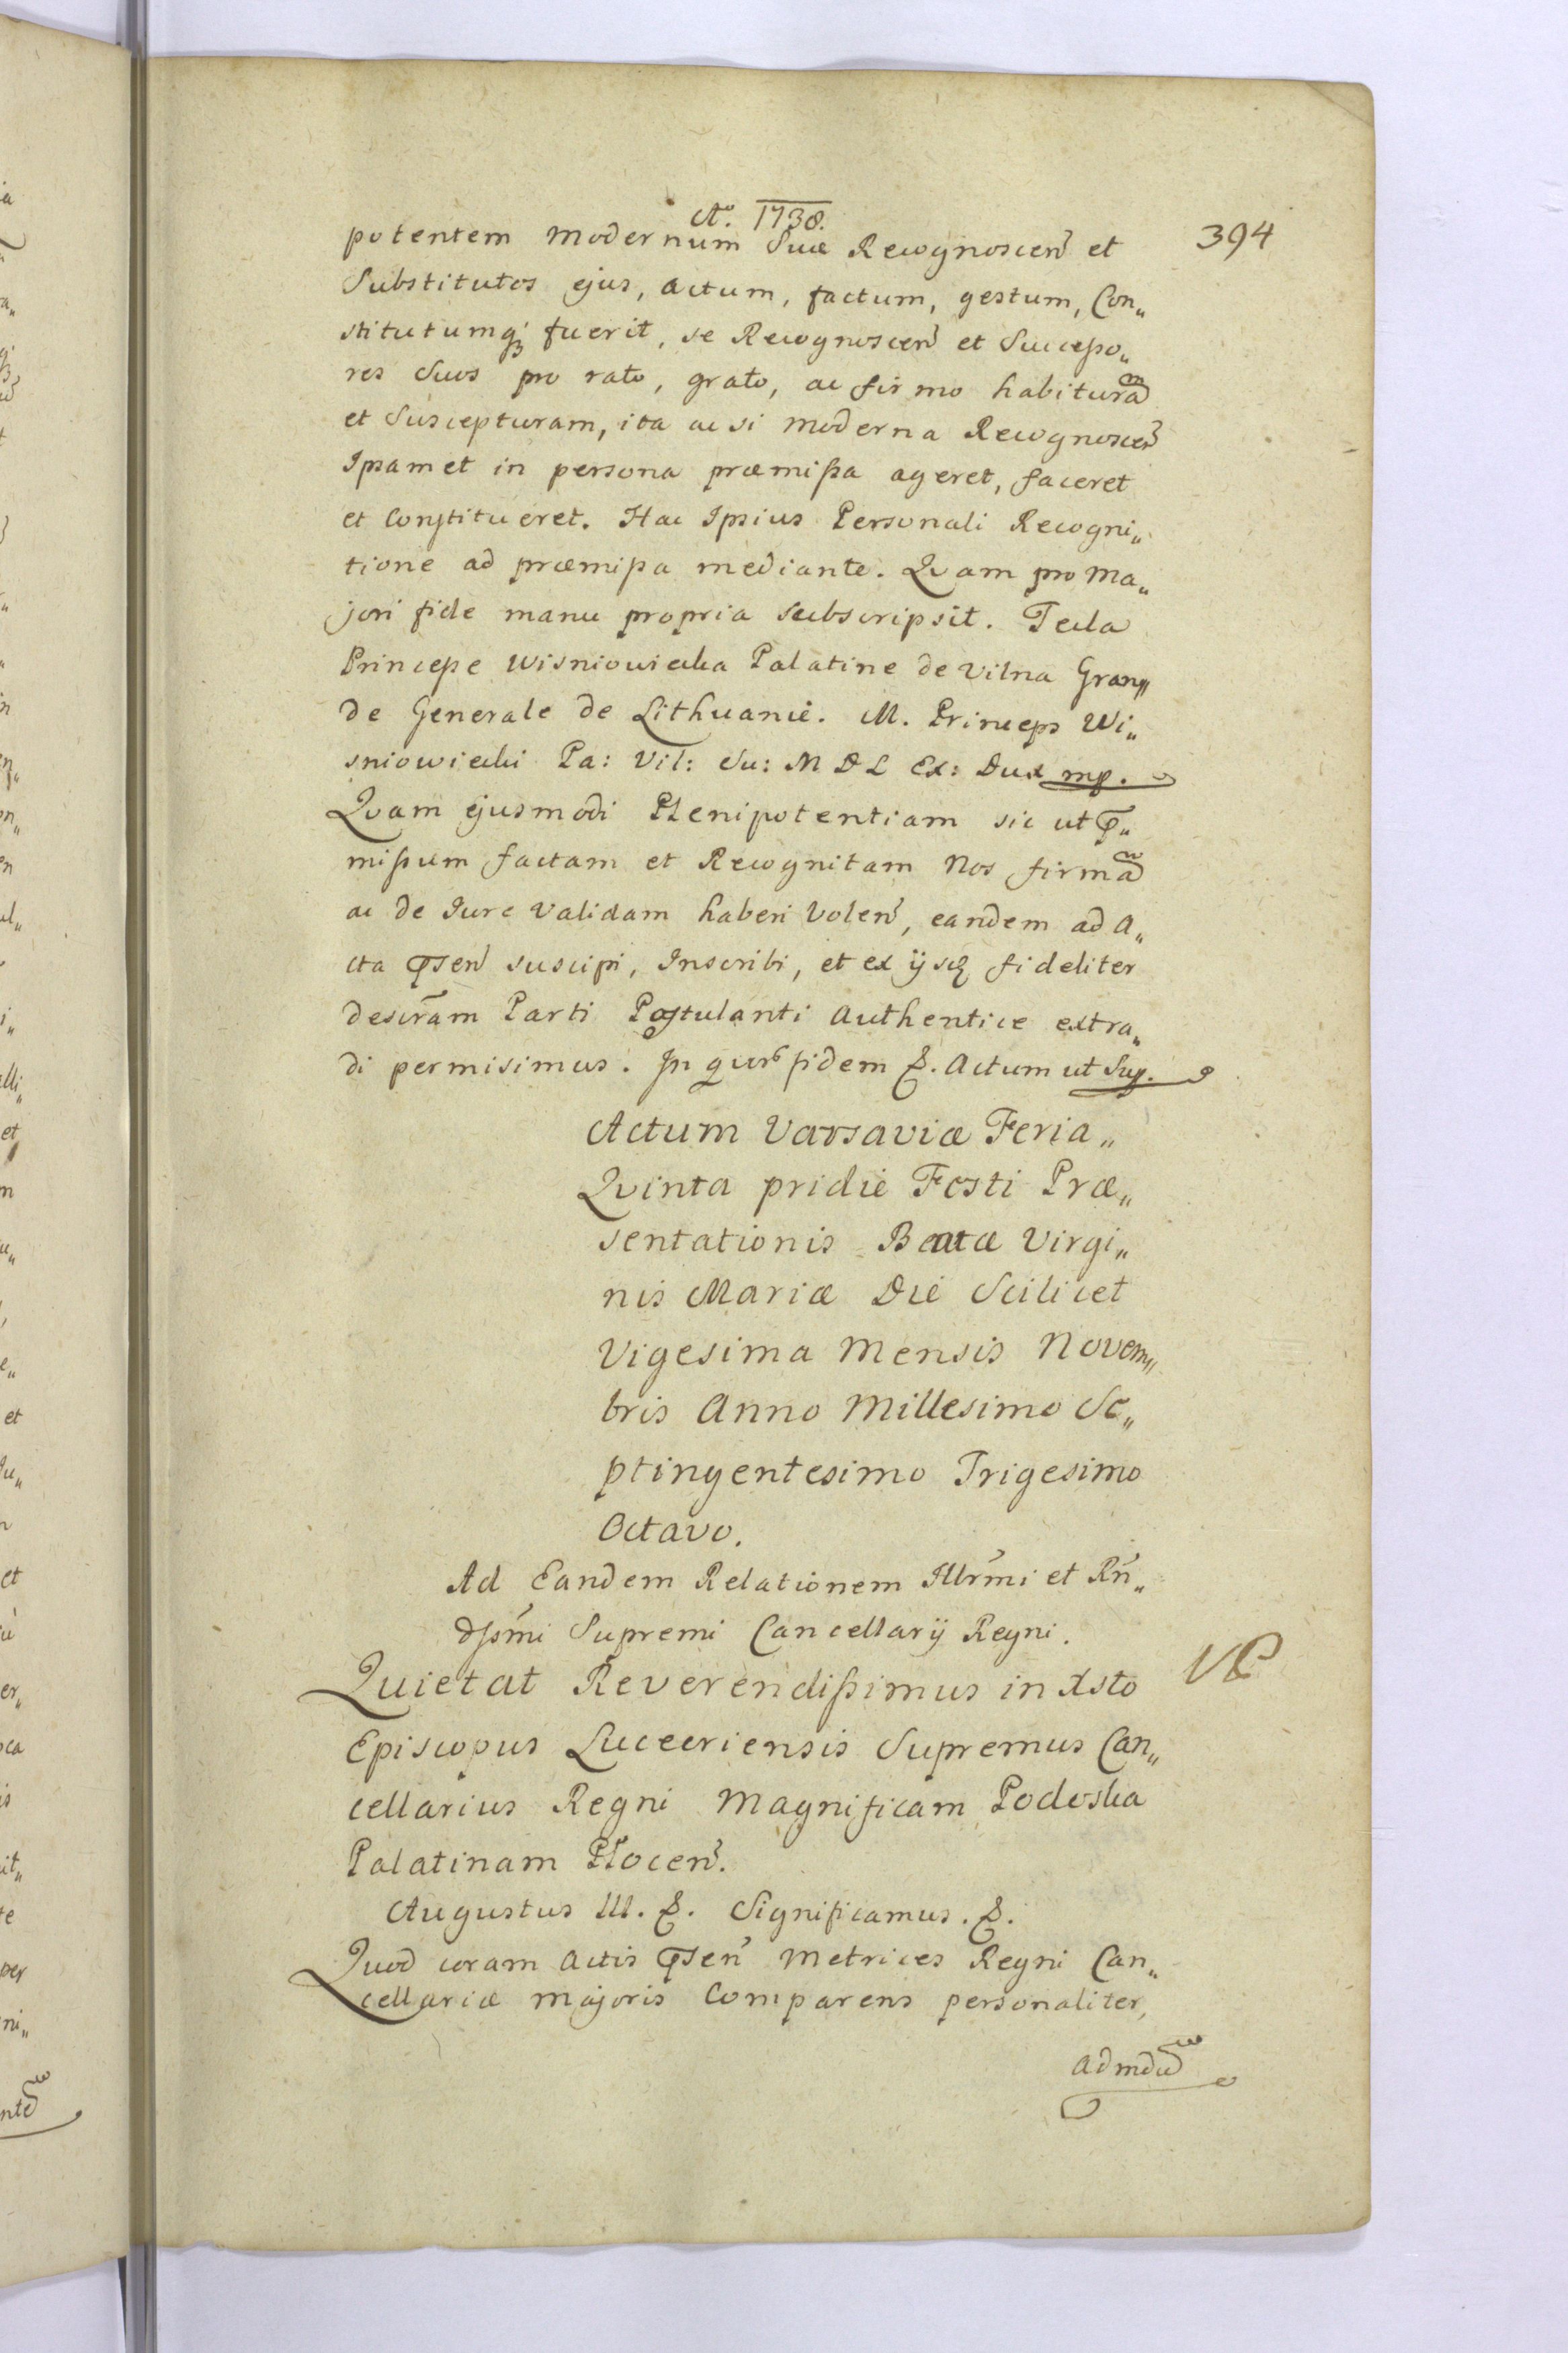 Aº. 1738.
394
potentem modernum Suæ Recognoscen̄ et
Substitutos ejus, actum, factum, gestum, Con„
stitutumq́; fuerit, se Recognoscen̄ et Succeßo„
res Suos pro rato, grato, ac firmo habiturā
et Suscepturam, ita ac si moderna Recognoscen̄
Ipsamet in persona præmißa ageret, faceret
et Constitueret. Hac Ipsius Personali Recogni„
tione ad præmißa mediante. Qvam pro Ma„
jori fide manu propria subscripsit. Tecla
Princeße Wisniowiecka Palatine de Vilna Gran„
de Generale de Lithuanie. M. Princeps Wi„
sniowiecki Pa: Vil: Su: M D L Ex: Dux mp.
Qvam ejusmodi Plenipotentiam sic ut p̄„
mißum factam et Recognitam Nos firmā
ac de Jure Validam haberi Volen̄, eandem ad A„
cta p̄sen̄ suscipi, Inscribi, et ex ijsq; fideliter
descr̄am Parti Postulanti Authentice extra„
di permisimus. In quor̄ fidem &. Actum ut Sup.
Actum Varsaviæ Feria„
Qvinta pridie Festi Præ„
sentationis Beatæ Virgi„
nis Mariæ Die Scilicet
Vigesima Mensis Novem„
bris Anno Millesimo Se„
ptingentesimo Trigesimo
Octavo.
Ad Eandem Relationem Illr̄mi et Rn̄„
dssm̄i Supremi Cancellarij Regni.
Quietat Reverendißimus in Xsto
Episcopus Luceoriensis Supremus Can„
cellarius Regni Magnificam Podoska
Palatinam Płocen̄.
Augustus III. &. Significamus. &.
Quod coram Actis p̄sen̄ Metrices Regni Can„
cellariæ majoris Comparens personaliter,
Admdū